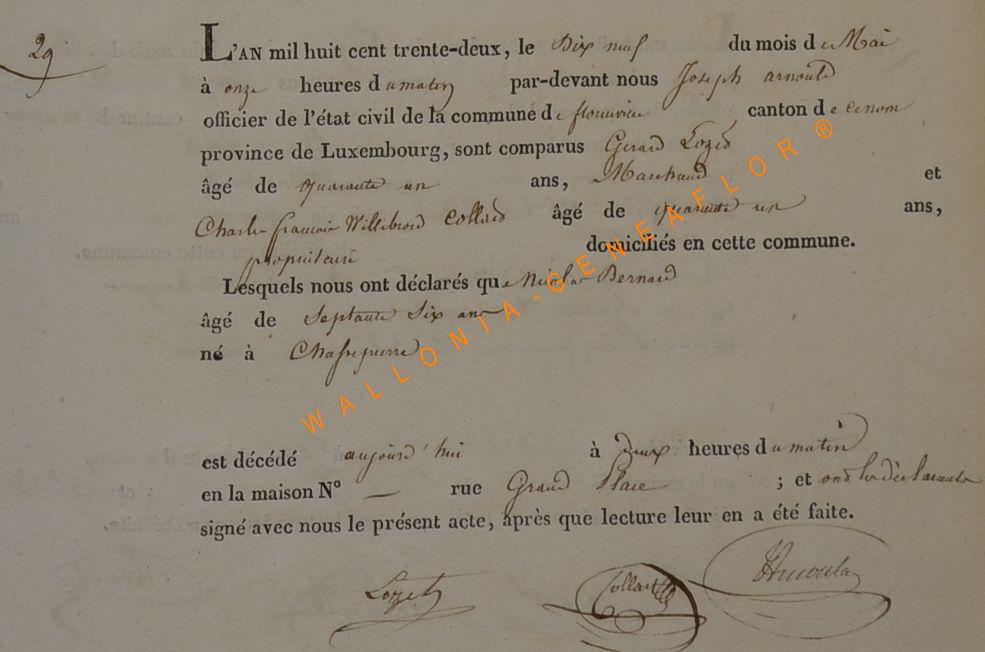 29
L'AN mil huit cent trente-deux, le Dix neuf du mois de Mai
à onze heures du matin par-devant nous Joseph arnould
officier de l'état civil de la commune de florenville canton de
province de Luxembourg, sont comparus Gerard Lozet
âgé de quarante un ans, Marchand et
Charles françois Willibrord Collard âgé de quarante un ans,
propriétaire domiciliés en cette commune.
Lesquels nous ont déclarés que Nicolas Bernard
âgé de Septante Six ans
né à Chassepierre
est décédé aujourd'hui à deux heures du matin
en la maison N° — rue Grand Place ; et ont les déclarants
signé avec nous le présent acte, après que lecture leur en a été faite.
Lozet Collard JArnould
WALLONIA-GENEAFLOR ®